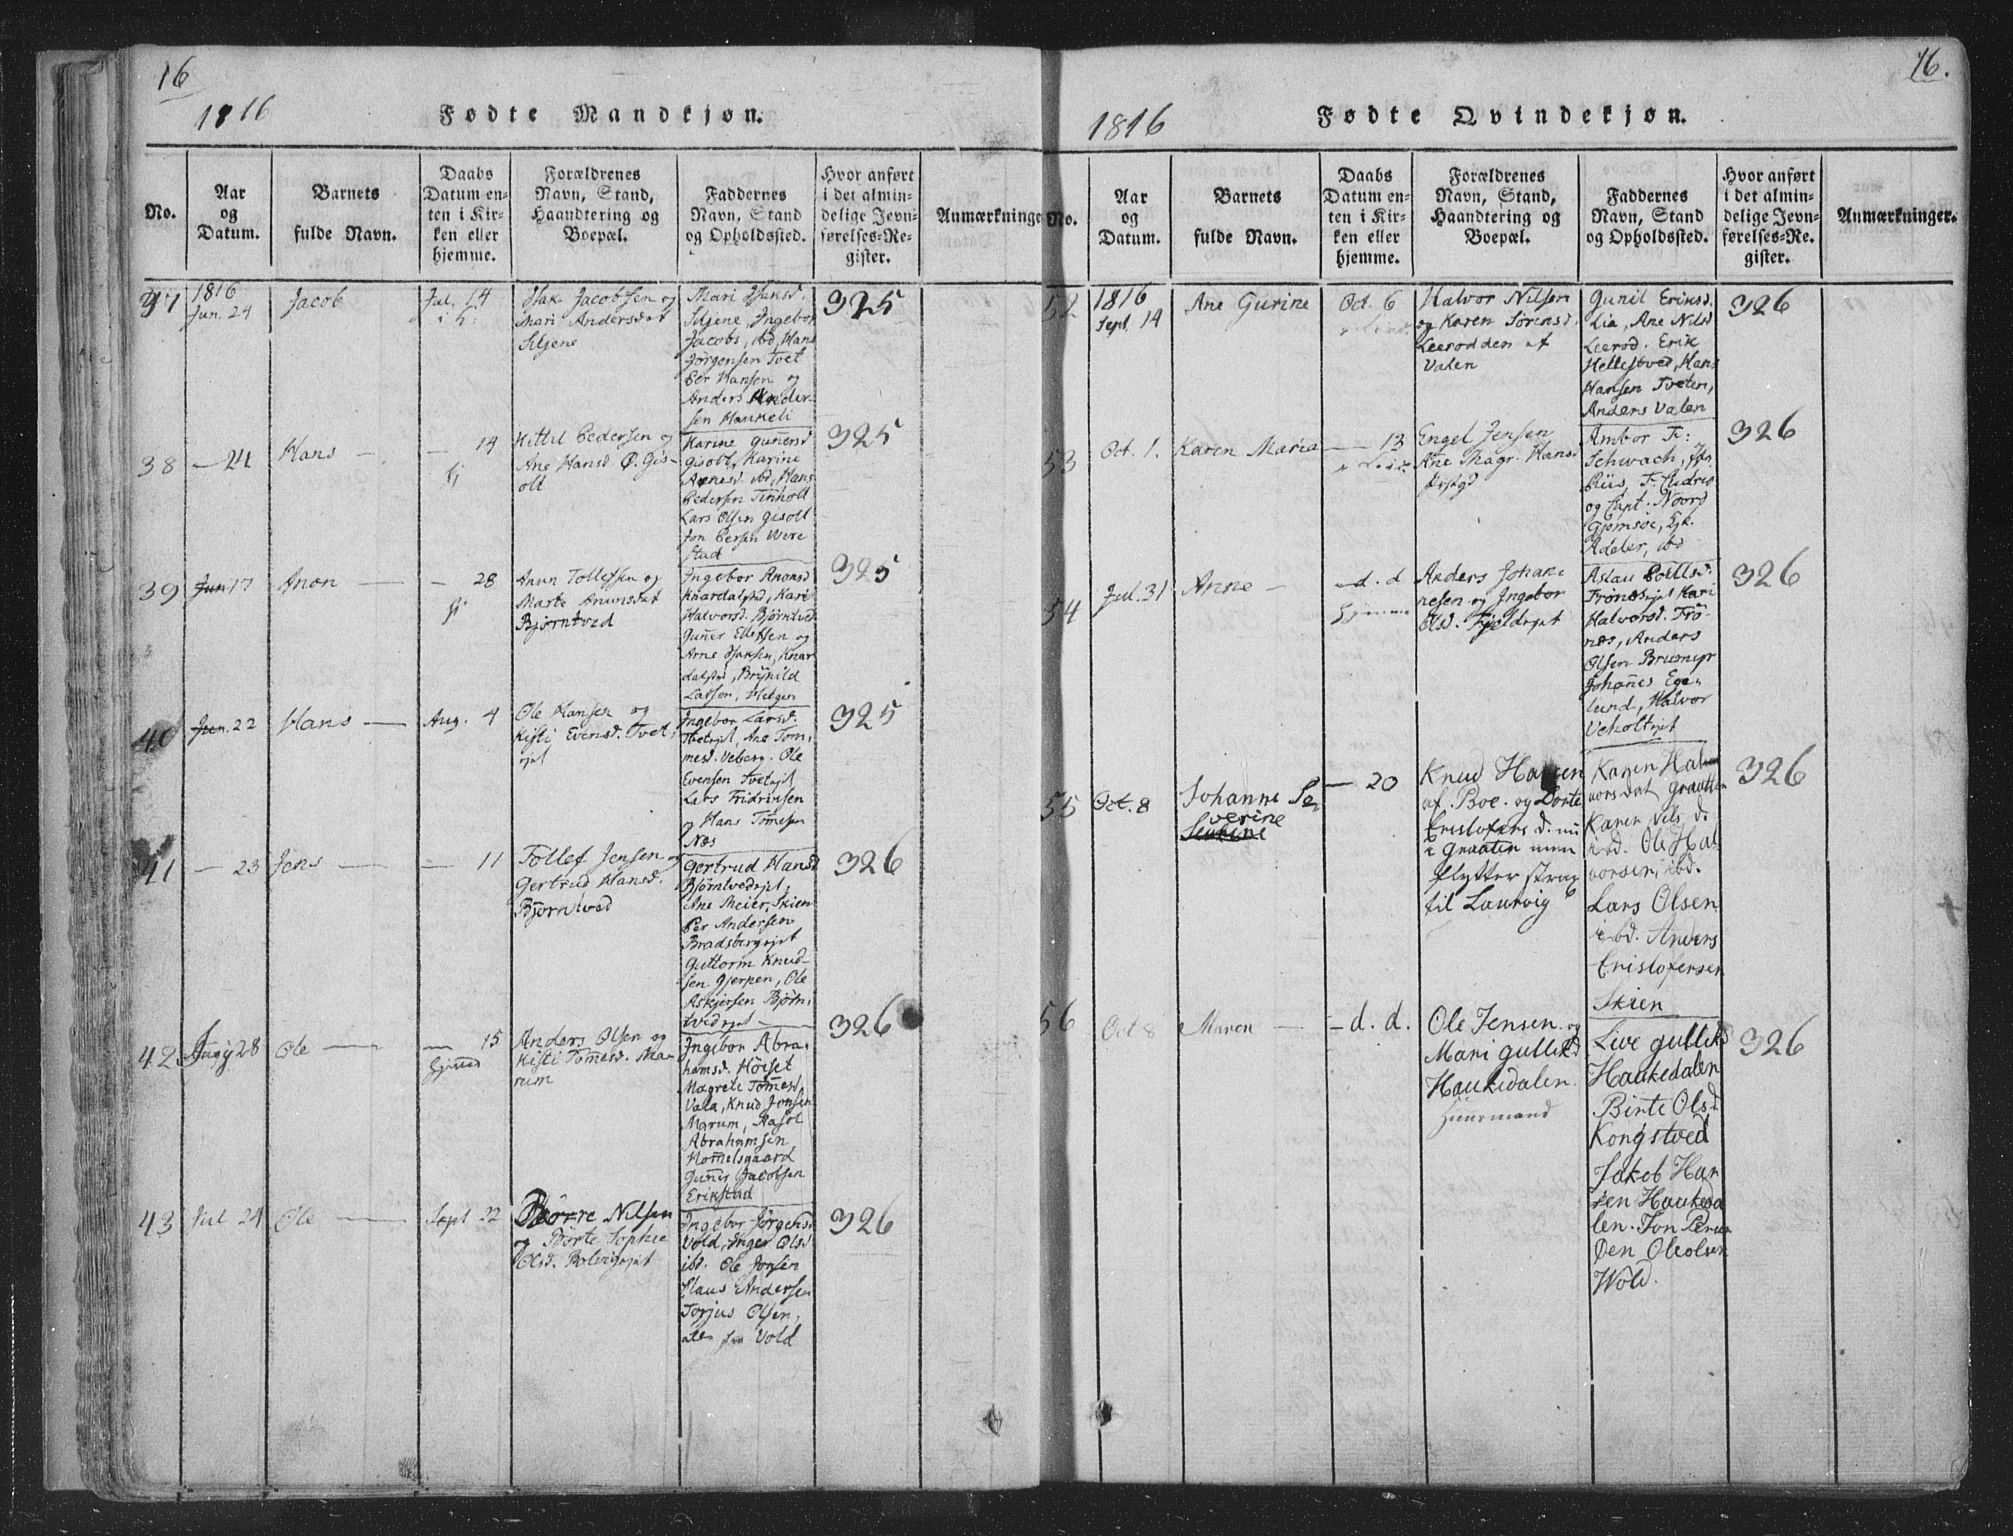 16
1816
Fødte Mandkjøn.
No.
Aar
og
Datum.
Barnets
fulde Navn.
Daabs
Datum en-
ten i Kir-
ken eller
hjemme.
Forældrenes
Navn, Stand,
Haandtering og
Boepæl.
Faddernes
Navn, Stand
og Opholdssted.
Hvor anført
i det almin-
delige Jevn-
førelses-Re-
gister.
Anmærkninger
37
1816
Jun. 24
Jacob
Jul. 14
Isak Jacobsen og
Mari Andersdat
Siljene
Mari Isaksd.
Siljene, Ingebor
Jacobs, ibd, Hans
Jørgensen Tvet
Per Hansen og
Anders Ander-
sen Haukeli
325
38
— 24
Hans —
— 14
Kittil Pedersen og
Ane Hansd. Ø. Gis-
olt
Karine Guñersd
Gisolt, Karine
Arnesd. ibd, Hans
Pedersen Tinholt
Lars Olsen Gisolt
Jon Persen Were
stad
325
39
Jun 17
Anon —
— 28
Anun Tollefsen og
Marte Anunsdat
Bjørntved
Ingebor Anonsd
Knardalstd, Kari
Halvorsd. Bjørntved
Guñer Ellefsen og
Arne Isaksen, Knar
dalstd, Brynild
Larson, Helgen
325
40
Jun. 22
Hans —
Aug. 4
Ole Hansen og
Kisti Evensd. Tvet,
ejet
Ingebor Larsd.
Tvetejet, Ane Tom,
mesd. Veberg. Ole
Evensen Tvetejet
Lars Fridrisen
og Hans Tom̃esen
Næs
325
41
— 23
Jens —
— 11
Tollef Jensen og
Gertrud Hansd.
Bjørntved
Gertrud Hansd
Bjørntvedejet,
Ane Meier, Skien
Per Andersen
Bradsbergejet
Guttorm Knud-
sen Gjerpen, Ole
Askjersen Bjørn,
tvedejet —
326
42
28
Ole —
— 15
Anders Olsen og
Kisti Tom̃esd. Ma-
rum
Ingebor Abra-
hamsd. Hoiset
Magrete Tom̃esd,
Vala, Knud Jonsen
Marum, Aasol
Abrahamsen
Hom̃elsgaard
Guñer Jacobsen
Erikstad
326
43
Jul 24
Ole —
Sept 22
Børre Nilsen
og Børte Sophie
Olsd. Bolevigejet
Ingebor Jørgensd
Vold, Inger Olsd
ibd. Ole Jonsen
Claus Andersen
Torjus Olsen,
alle fra Vold
326
16.
1816
Fødte Qvindekjøn.
No.
Aar
og
Datum.
Barnets
fulde Navn.
Daabs
Datum en-
ten i Kir-
ken eller
hjemme.
Forældrenes
Navn, Stand,
Haandtering og
Boepæl.
Faddernes
Navn, Stand
og Opholdssted.
Hvor anført
i det almin-
delige Jevn-
førelses-Re-
gister.
Anmærkninger.
52
1816
Sept. 14
Ane Gurine
Oct. 6
Halvor Nilsen
og Karen Sørensd.
Leerodden af
Valen
Gunil Eriksd.
Lia, Ane Nilsd
Leerod. Erik
Hellestved, Hans
Hansen Tveten,
Anders Valen
326
53
Oct. 1.
Karen Maria
— 13
Engel Jensen
Ane Magr. Hansd
Ambor Fr:
Schwach, Jfr.
Riis, Fr.
og Capt. Noord
Gjemsøe, Kjk.
Adeler, ibd
326
54
Jul. 31
Anne —
— d. d
hjemme
Anders Johan-
nesen og Ingebor
Olsd. Fjeldejet
Aslau Poellsd.
Frønesejet Kari
Halvorsd. Frø-
næs, Anders
Olsen Brusnejr
Johañes Ege-
lund, Halvor
Veholtejet
326
55
Oct. 8
Johanne Se-
verine
— 20
Knud Hansen
af Boe. og Dorte
Cristofers d. nu
i Graaten men
flytter strax
til Laurvig
Karen Hal
vorsdat Graaten
Karen Nils d.
ibd. Ole Hal
vorsen, ibd.
Lars Olsen
ibd. Anders
Cristofersen
Skien
326
56
Oct 8
Maren —
— d. d.
Ole Jensen og
Mari Gulliksd
Haukedalen
Huusmand
Live Gulliksd
Haukedalen
Birte Olsd
Kongstved
Jakob Han
sen Haukeda
len. Jon Persen
Øen Ole Olsen
Wold.
326